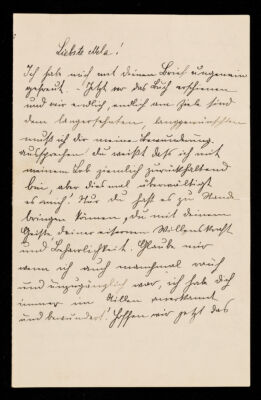 Liebste Mela!
Ich habe mich mit deinem Brief ungemein
gefreut. – Jetzt wo das Buch erschienen
und wir endlich, endlich am Ziele sind
dem langersehnten, langgewünschten
muß ich dir meine Bewunderung
aussprechen. Du weißt daß ich mit
meinem Lob ziemlich zurückhaltend
bin, aber diesmal überwältigt
es mich! Nur du hast es zu Stande
bringen können, du mit deinem
Geiste deiner eisernen Willenskraft
und Beharlichkeit! Glaube mir
wenn ich auch manchmal rauh
und unzugänglich war, ich habe dich
immer im Stillen anerkannt
und bewundert! Hoffen wir jetzt das